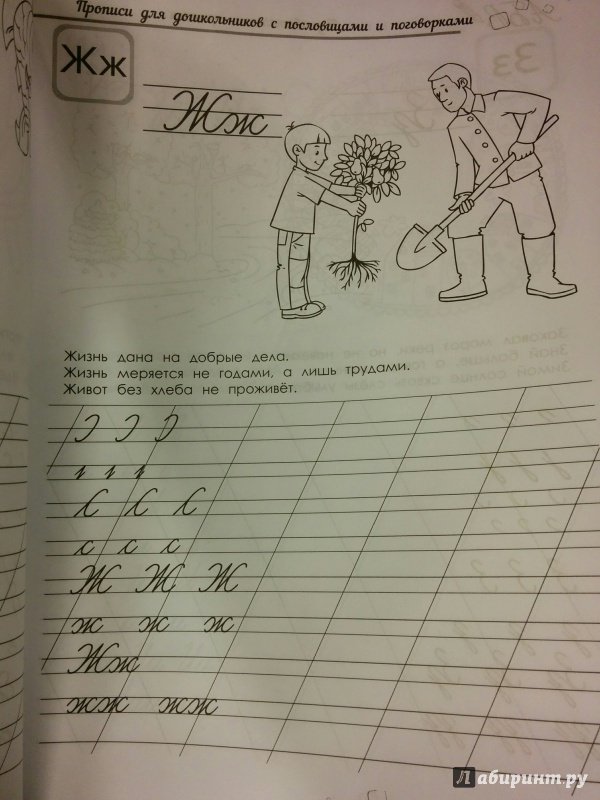 Прописи для дошкольников с пословицами и поговорками
Жж
Жж
Жизнь дана на добрые дела.
Жизнь меряется не годами, а лишь трудами.
Живот без хлеба не проживёт.
Ж Ж Ж
ж ж ж
Жж
жж жж
Лабиринт.ру